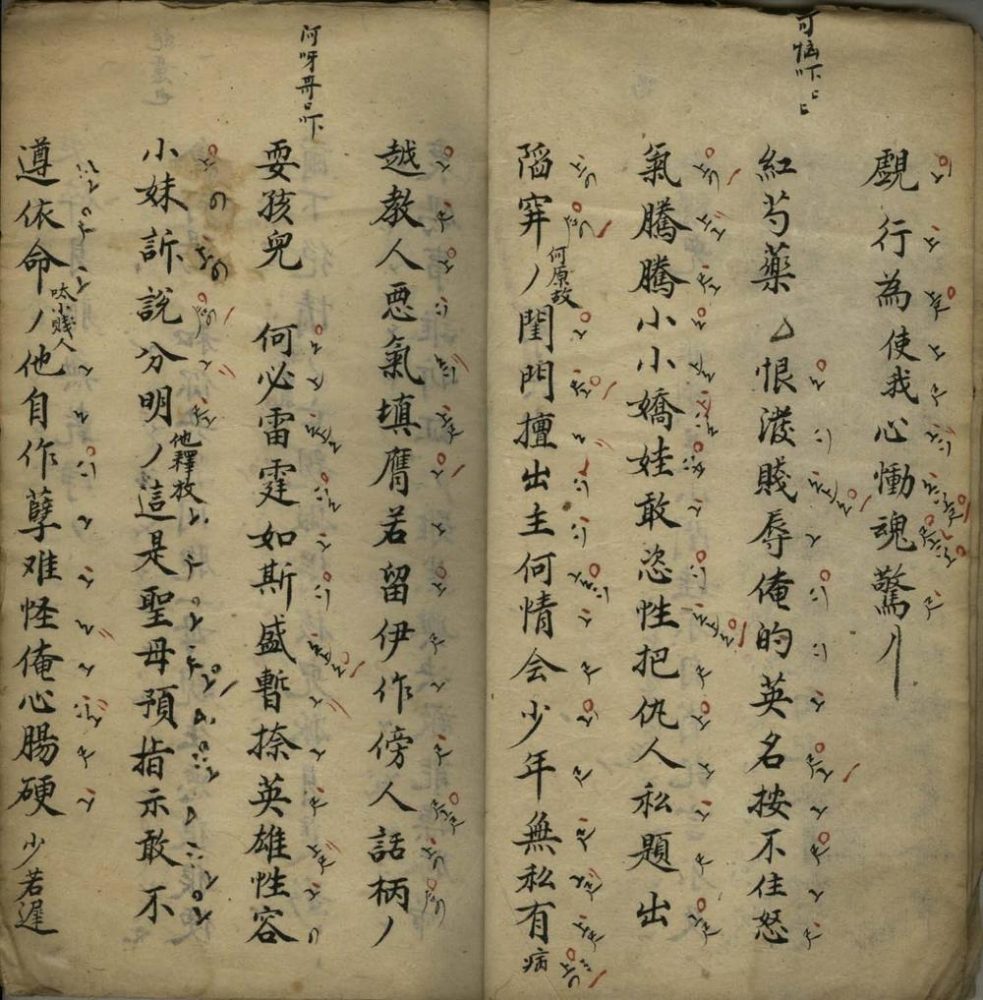 可惱吓吓
覷行為使我心慟魂驚
紅芍藥 恨潑賤辱俺的英名按不住怒
氣騰騰小小嬌娃敢恣性把仇人私題出
陷穽何原故閨門擅出主何情会少年無私有病
阿呀哥哥吓
越教人惡氣填膺若留伊作傍人話柄
耍孩兒 何必雷霆如斯盛暫捺英雄性容
小妹訴說分明他釋放這是聖母預指示敢不
遵依命呔小賤人他自作孽难怪俺心腸硬少若遲